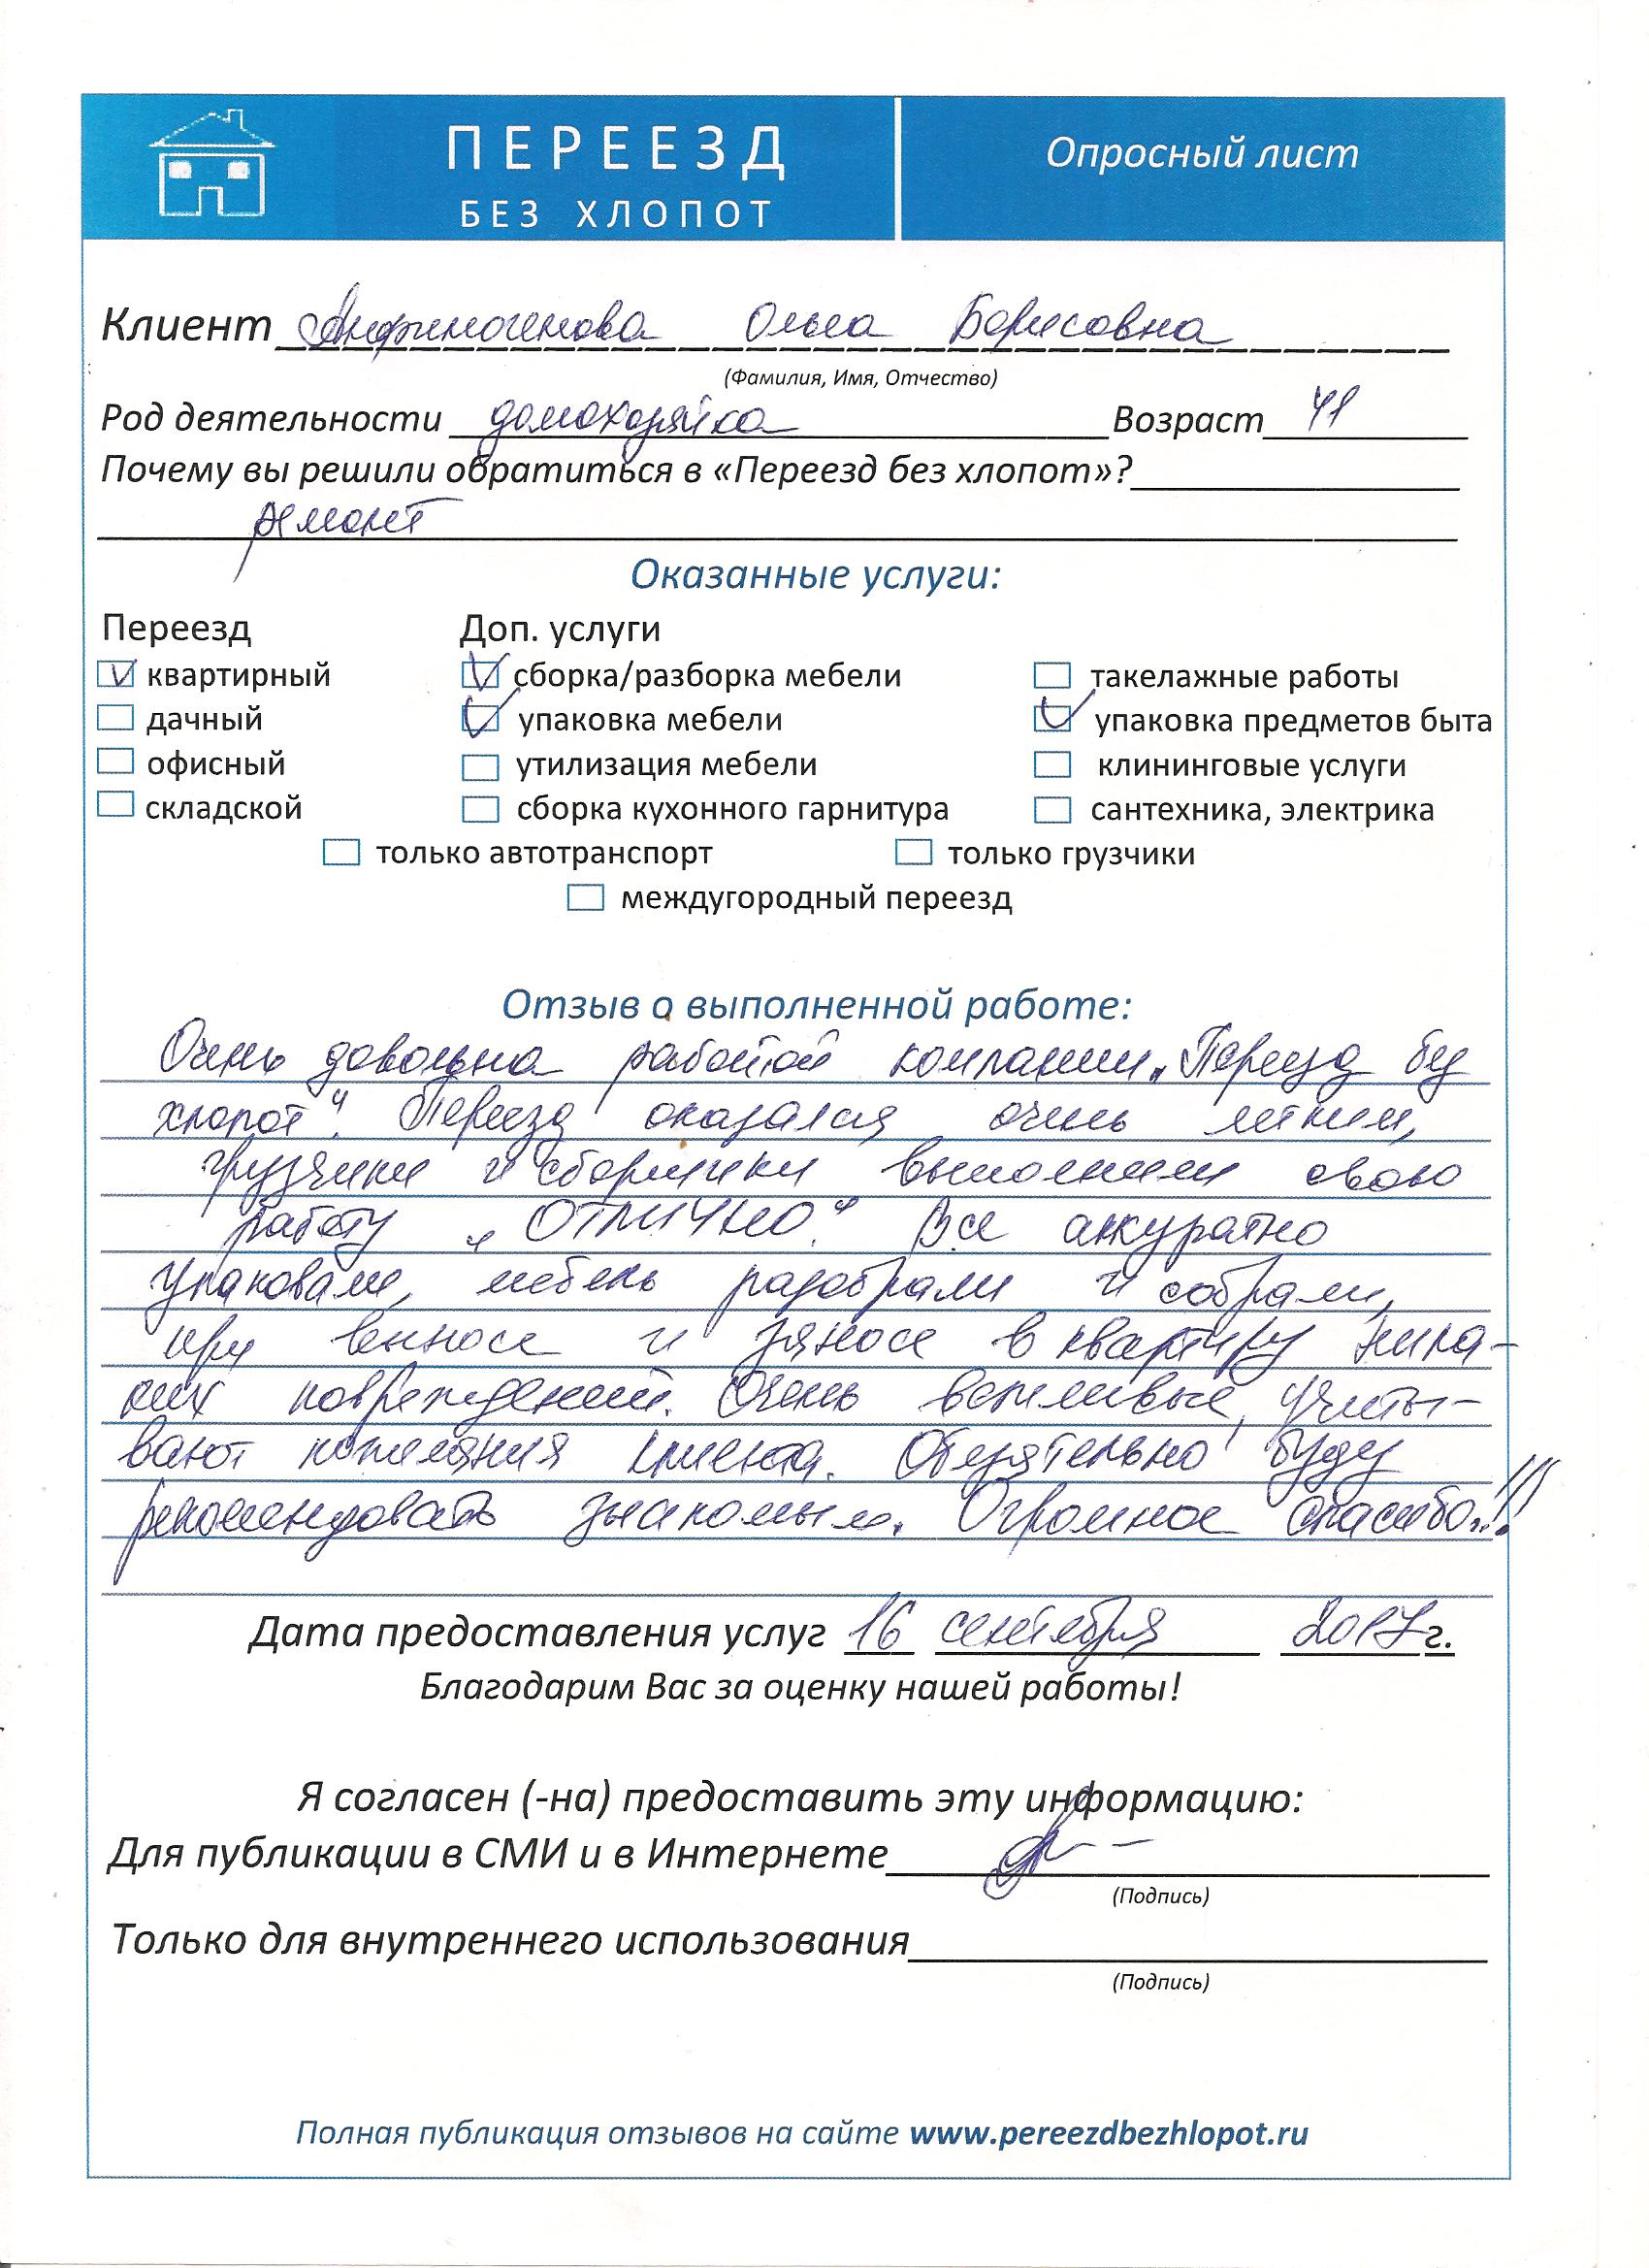 ПЕРЕЕЗД
БЕЗ ХЛОПОТ
Опросный лист
Клиент Анфиногенова Ольга Борисовна
(Фамилия, Имя, Отчество)
Род деятельности домохозяйка Возраст 41
Почему вы решили обратиться в «Переезд без хлопот»?
ремонт
Оказанные услуги:
Переезд Доп. услуги
квартирный сборка/разборка мебели такелажные работы
дачный упаковка мебели упаковка предметов быта
офисный утилизация мебели клининговые услуги
складской сборка кухонного гарнитура сантехника, электрика
только автотранспорт только грузчики
междугородный переезд
Отзыв о выполненной работе:
Очень довольна работой компании „Переезд без
хлопот“. Переезд оказался очень легким,
грузчики и сборщики выполнили свою
работу „ОТЛИЧНО“. Все аккуратно
упаковали, мебель разобрали и собрали,
при выносе и заносе в квартиру ника-
ких повреждений. Очень вежливые, учиты-
вают пожелания клиента. Обязательно буду
рекомендовать знакомым. Огромное спасибо..!!!
Дата предоставления услуг 16 сентября 2017 г.
Благодарим Вас за оценку нашей работы!
Я согласен (-на) предоставить эту информацию:
Для публикации в СМИ и в Интернете
(Подпись)
Только для внутреннего использования
(Подпись)
Полная публикация отзывов на сайте www.pereezdbezhlopot.ru